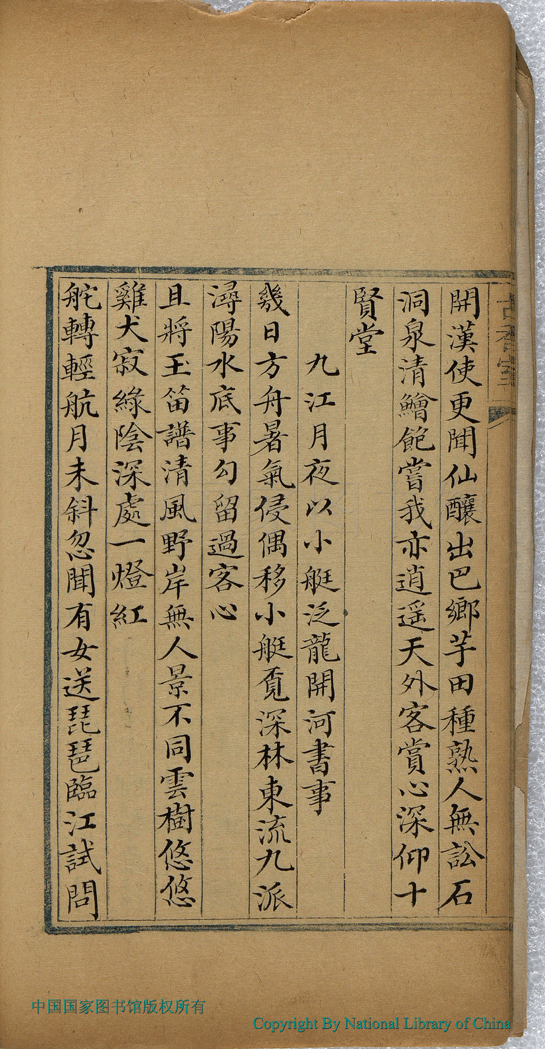 古香室
開漢使更聞仙釀出巴鄉芋田種熟人無訟石
洞泉清鱠飽嘗我亦逍遥天外客賞心深仰十
賢堂
九江月夜以小艇泛龍開河書事
幾日方舟暑氣侵偶移小艇覔深林東流九派
潯陽水底事勾留過客心
且將玉笛譜清風野岸無人景不同雲樹悠悠
雞犬寂綠陰深處一燈紅
舵轉輕航月未斜忽聞有女送琵琶臨江試問
中国国家图书馆版权所有
Copyright By National Library of China